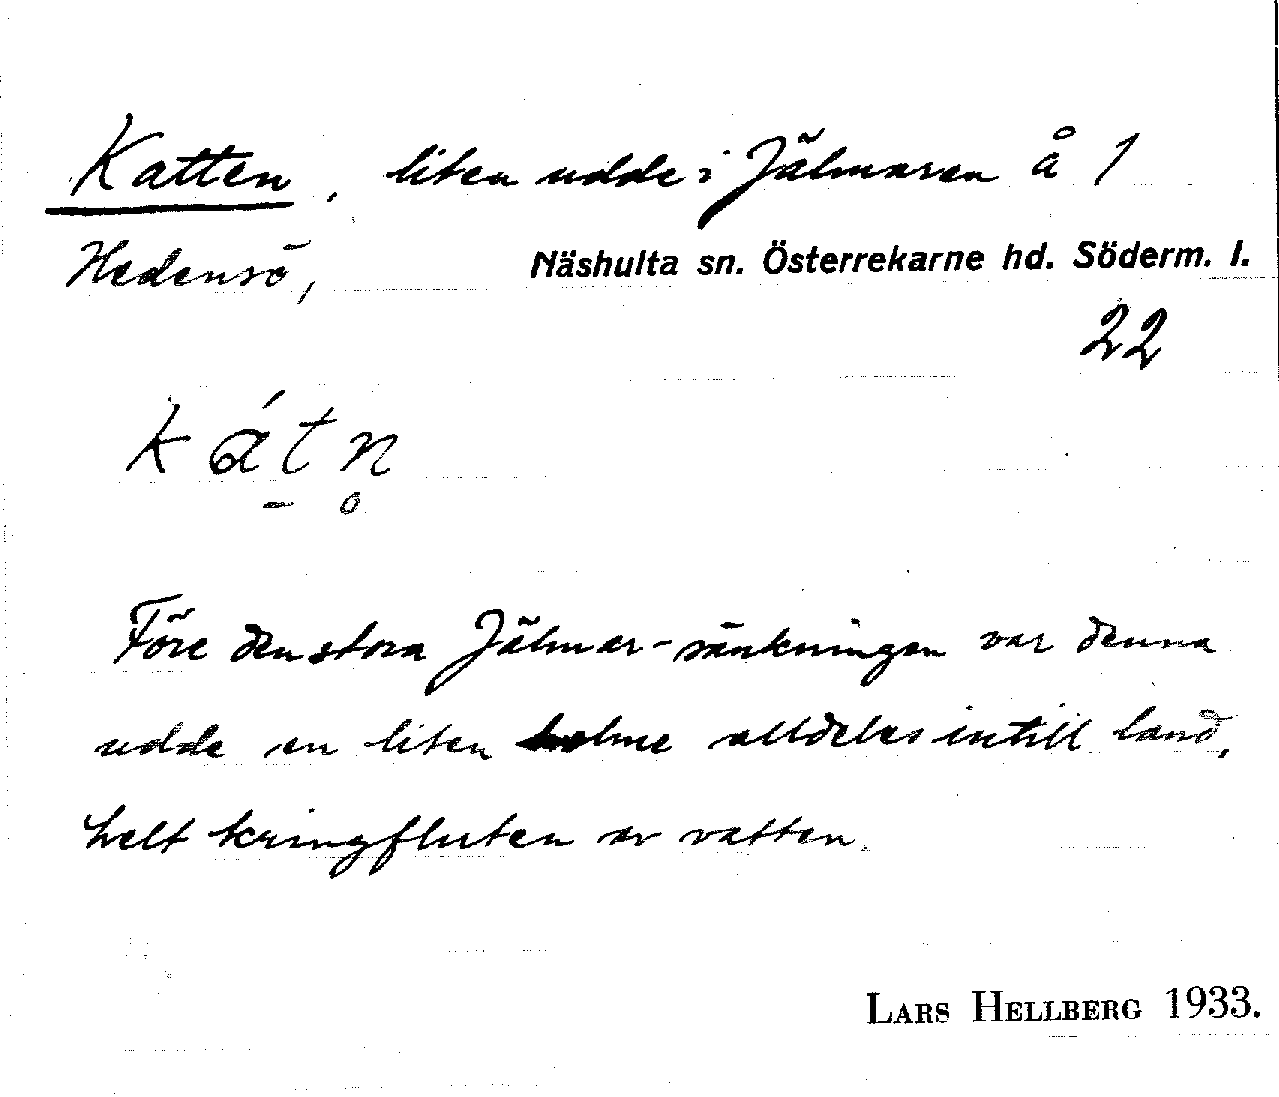 Katten, liten udde i Jälmaren å 1
Hedensö,
Näshulta sn. Österrekarne hd. Söderm. l.
22
kátn
Före den stora Jälmar-sänkningen var denna
udde en liten holme alldeles intill land,
helt kringfluten av vatten.
LARS HELLBERG 1933.